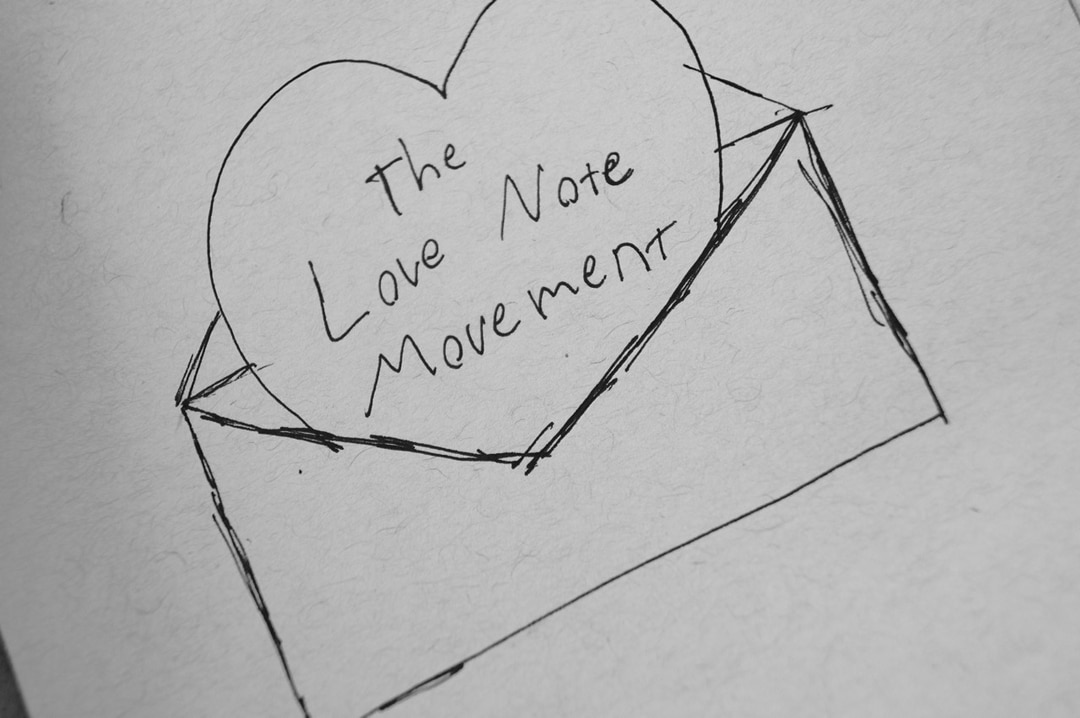 The
Love Note
Movement